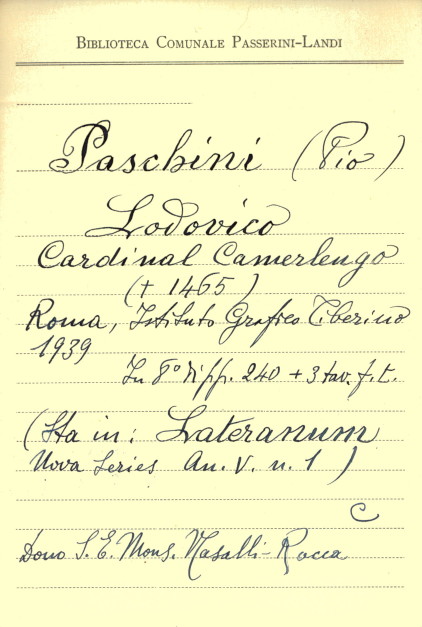 BIBLIOTECA COMUNALE PASSERINI-LANDI
Paschini (Pio)
Lodovico
Cardinal Camerlengo
(† 1465)
Roma, Istituto Grafico Tiberino
1939
In 8° di pp. 240 + 3 tav. f. t.
(Sta in: Lateranum
Nova Series An. V. n. 1)
C
Dono S. E. Mons. Nasalli-Rocca